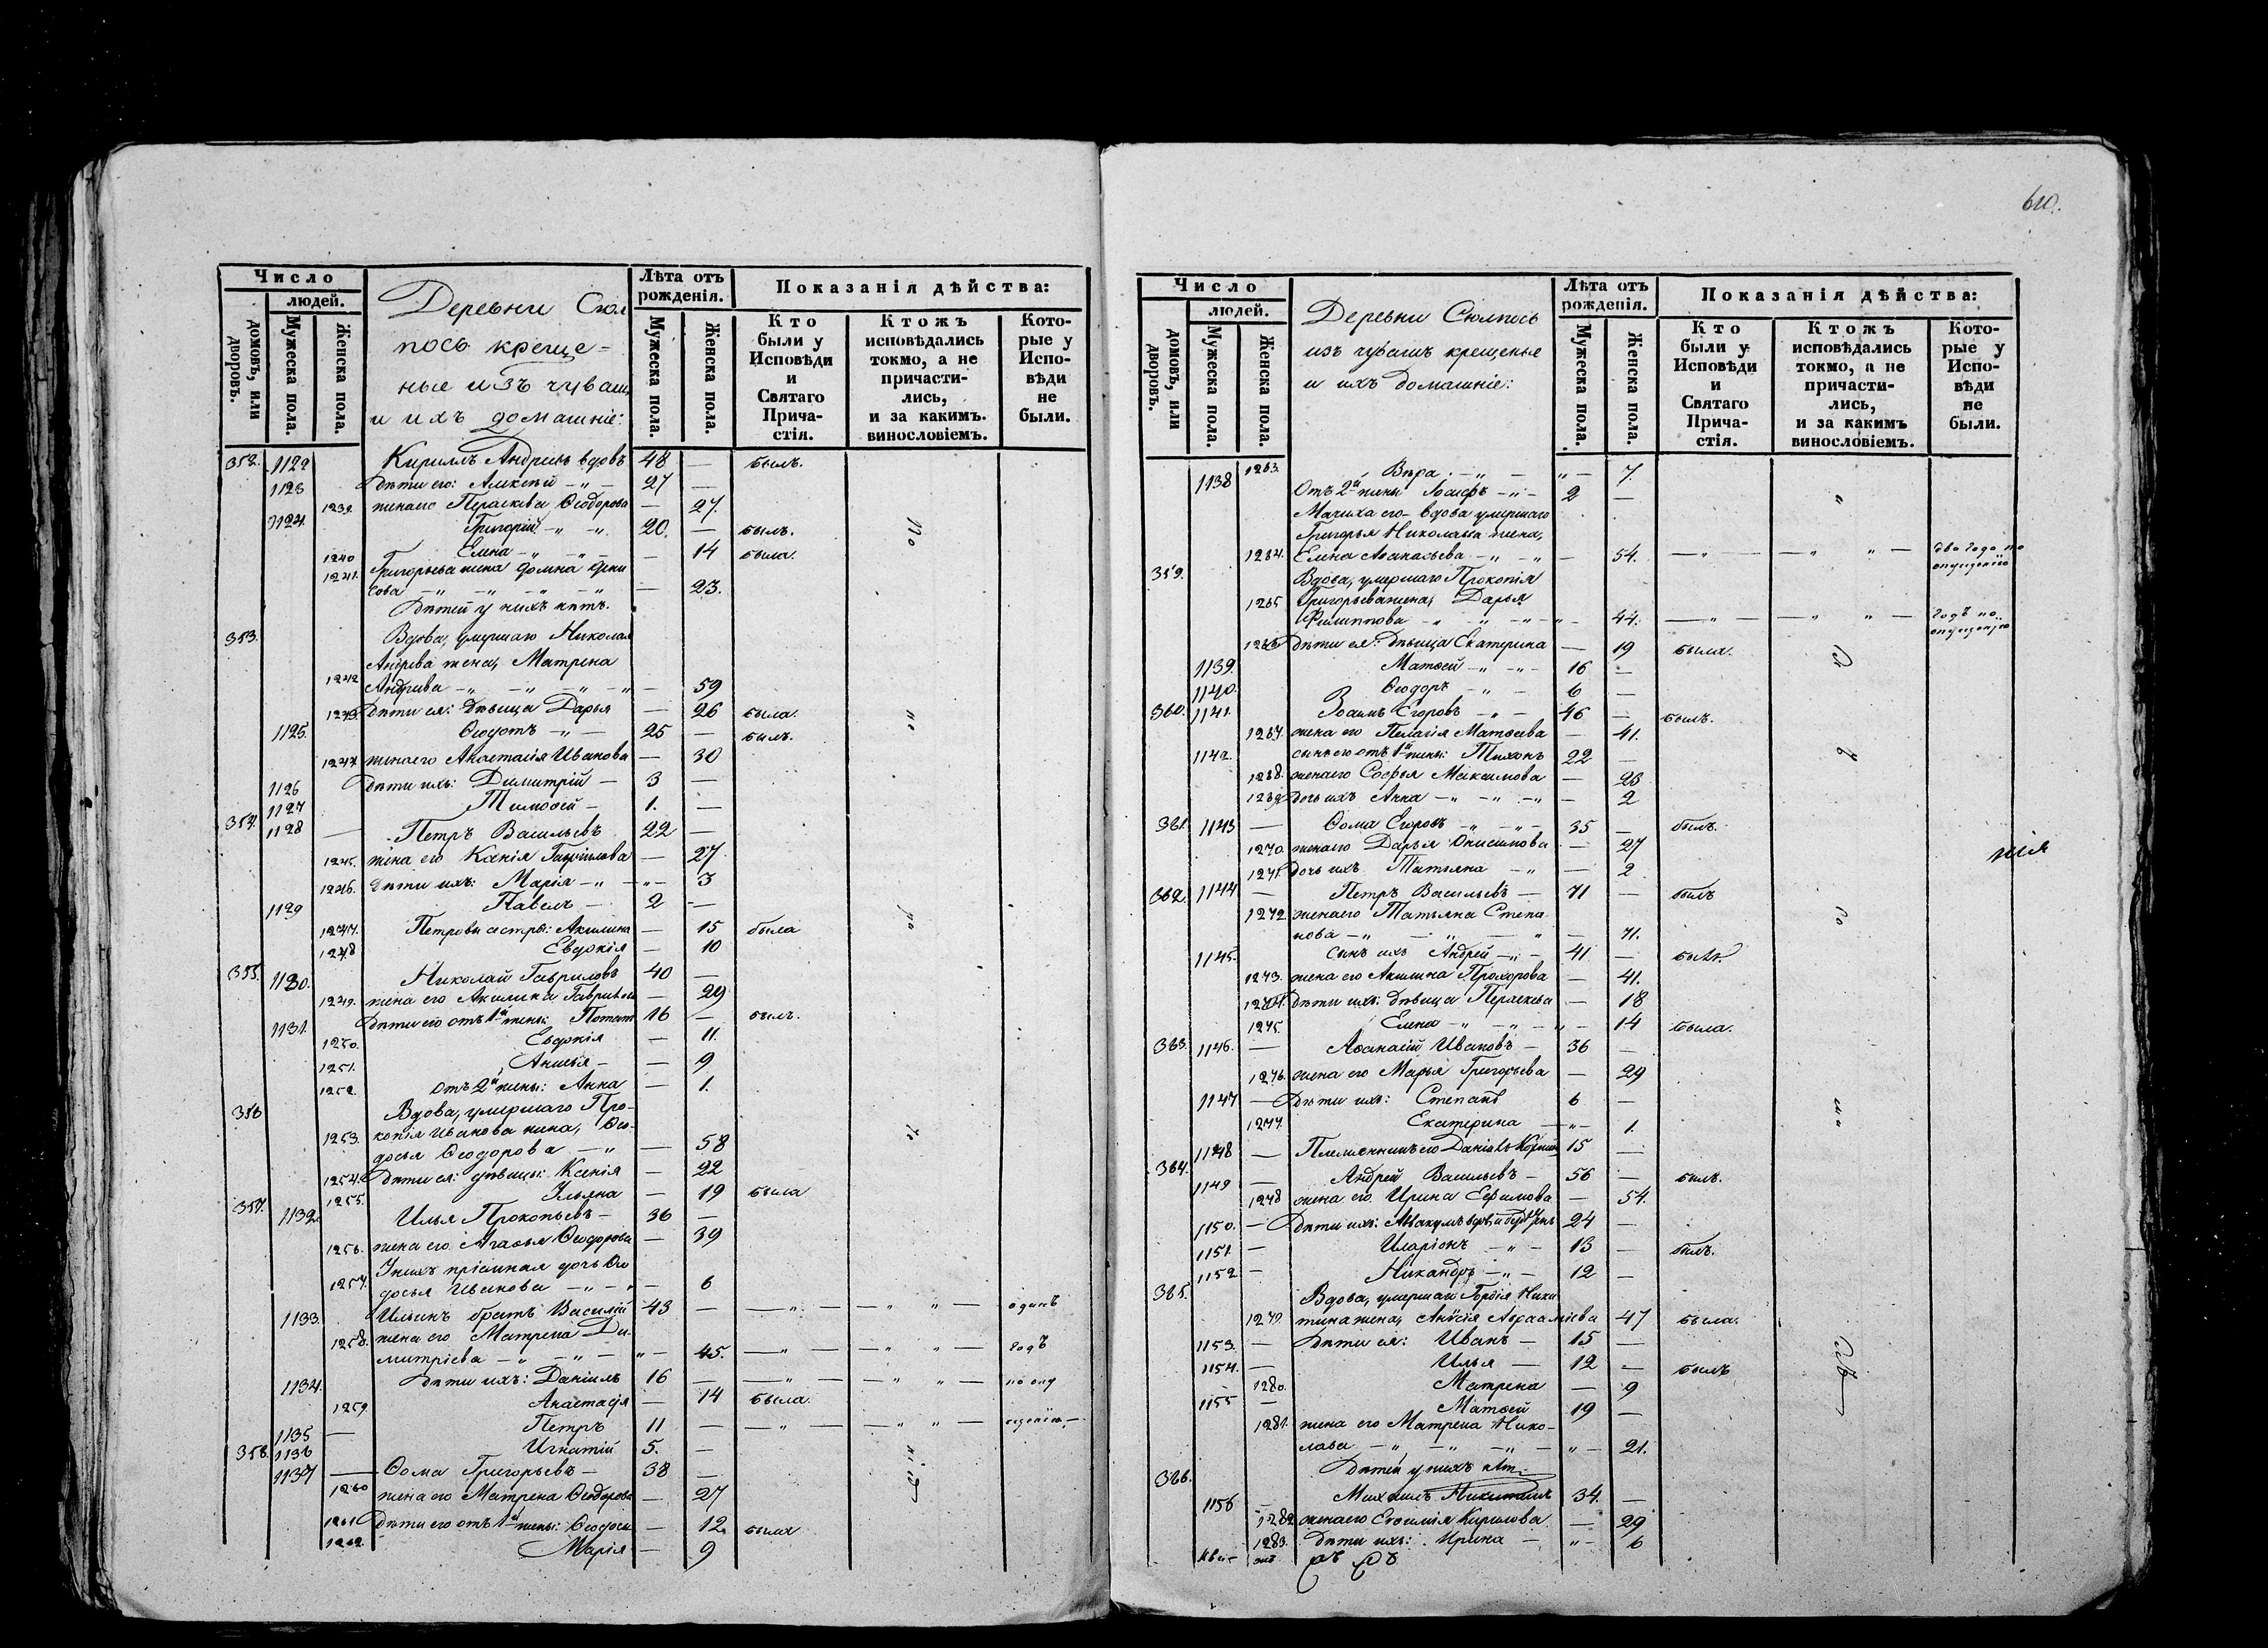 610.
Число
людей.
домовъ, или дворовъ.
Мужеска пола.
Женска пола.
Деревни Сюл
пось креще-
ные изъ чуваш
и ихъ домашніе:
Лѣта отъ рожденія.
Мужеска пола.
Женска пола.
Показанія дѣйства:
Кто были у Исповѣди и Святаго Прича-стія.
Ктожъ исповѣдались токмо, а не причасти-лись, и за какимъ. винословіемъ.
Кото-рые у Испо-вѣди не были.
352. 1122 Кириллъ Андреевъ вдовъ 48 — былъ.
1123 Дѣти его: Алексѣй — „ — 27 —
1239. жена его Пераскева Ѳеодорова — 27.
1124. Григорій — „ — „ 20. — былъ.
1240 Елена — „ — „ — — 14 была.
1241. Григорьева жена Домна Дени
сова — „ — „ — „ — „ — 23.
Дѣтей у нихъ нѣтъ.
353. Вдова, умершаго Николая
Андреева жена, Матрена
1242 Андреева — „ — „ — „ — „ — 59
1243. Дѣти ея: дѣвица Дарья — 26 была.
1125. Ѳедотъ — „ — 25 — былъ.
1244 жена его Анастасія Иванова — 30
1126 Дѣти ихъ: Димитрій — 3 —
1127 Тимоѳей — 1. —
354. 1128 — Петръ Васильевъ 22 —
1245. жена его Ксенія Гаврилова — 27
1246. Дѣти ихъ: Марія — „ — „ — 3
1129 Павелъ — 2 —
1247. Петровы сестры: Акилина — 15 была
1248 Евдокія — 10
355. 1130. Николай Гавриловъ 40 —
1249. жена его Акилина Гаврилова — 29
1131. Дѣти его отъ 1й жены: Потапъ 16 — былъ.
1250. Евдокія — 11.
1251. Анисья — — 9
1252. отъ 2й жены: Анна — 1.
356 Вдова, умершаго Про-
1253. копія Иванова жена, Ѳео-
досья Ѳеодорова — „ — 58
1254. Дѣти ея: дѣвицы: Ксенія — 22
1255. Ульяна — 19 была
357. 1132. Илья Прокопьевъ — 36 —
1256. жена его Агаѳья Ѳеодорова — 39
У нихъ пріемная дочь Ѳео
1257. досья Иванова — „ — „ — 6
1133. Ильинъ братъ Василій 43 — — „ — — „ „ — одинъ
1258. жена его Матрена Ди-
митріева — „ — „ — „ — 45. — „ — — „ „ — годъ
1134. Дѣти ихъ: Даніилъ 16 — — „ — — „ „ — по опу
1259. Анастасія — 14 была.
1135 — Петръ 11 — — „ — — „ „ —
1136 Игнатій 5. —
358. 1137 — Ѳома Григорьевъ — 38 —
1260 жена его Матрена Ѳеодорова — 27
1261 Дѣти его отъ 1й жены: Ѳеодосья — 12. была
1262. Марія — 9
Число
людей.
домовъ, или дворовъ.
Мужеска пола.
Женска пола.
Деревни Сюлпось
изъ чувашъ крещеные
и ихъ домашніе:
Лѣта отъ рожденія.
Мужеска пола.
Женска пола.
Показанія дѣйства:
Кто были у Исповѣди и Святаго Прича-стія.
Ктожъ исповѣдались токмо, а не причасти-лись, и за какимъ винословіемъ.
Кото-рые у Испо-вѣди не были.
1263. Вѣра — „ — „ — 7.
1138 Отъ 2й жены Іосифъ — „ — 2 —
Мачиха его — вдова умершаго
Григорья Николаева жена,
1264. Елена Аѳанасьева — „ — „ — 54. — „ — — „ „ — два года по
опущенію
359. Вдова, умершаго Прокопія
1265 Григорьева жена, Дарья
Филиппова — „ — „ — „ — 44. — „ — — „ „ — годъ по
опущенію
1266 Дѣти ея: дѣвица Екатерина — 19 была.
1139. Матѳей — „ — „ — 16 —
1140. Ѳеодоръ — „ — 6 —
360. 1141. Іоакимъ Егоровъ — „ — 46 — былъ.
1267. жена его Пелагія Матѳеева — 41.
1142. сынъ его отъ 1й жены: Тихонъ 22 —
1268. жена его Софья Максимова — 23
1269. дочь ихъ Анна — „ — „ — „ — 2
361. 1143 — Ѳома Егоровъ — „ — „ — 35 — былъ.
1270. жена его Дарья Онисимова — 27
1271. дочь ихъ Татьяна — „ — 2
362. 1144 — Петръ Васильевъ — 71 — былъ
1272 жена его Татьяна Степа
нова — „ — „ — „ — 71.
1145. Сынъ ихъ Андрей — „ — 41 — былъ.
1273. жена его Акилина Прохорова — 41.
1274. Дѣти ихъ: дѣвица Пераскева — 18
1275. Елена — „ — „ — „ — 14 была.
363. 1146. — Аѳанасій Ивановъ — 36 —
1276. жена его Марья Григорьева — 29
1147 — Дѣти ихъ: Степанъ 6 —
1277. Екатерина — „ — 1.
1148 — Племянникъ его Даніилъ 15 —
364. 1149 — Андрей Васильевъ — 56 — былъ.
1278 жена его Ирина Ефимова — 54.
1150. — Дѣти ихъ: Аввакумъ 24 —
1151. — Иларіонъ — „ — 13 — былъ.
1152 — Никандръ — „ — 12 —
365. Вдова, умершаго Гордія Ники
1279. тина жена, Анисія Авраамиева 47 была.
1153. — Дѣти ея: Иванъ — 15 —
1154. — Илья — 12 — былъ
1280. Матрена — 9
1155 — Матѳей 19 —
1281. жена его Матрена Нико-
лаева — „ — „ — „ — „ — 21.
Дѣтей у нихъ нѣтъ
366. 1156 — Михаилъ Никитинъ 34. —
1282 жена его Евѳимія Кирилова — 29
1283. Дѣти ихъ: Ирина — „ — 6